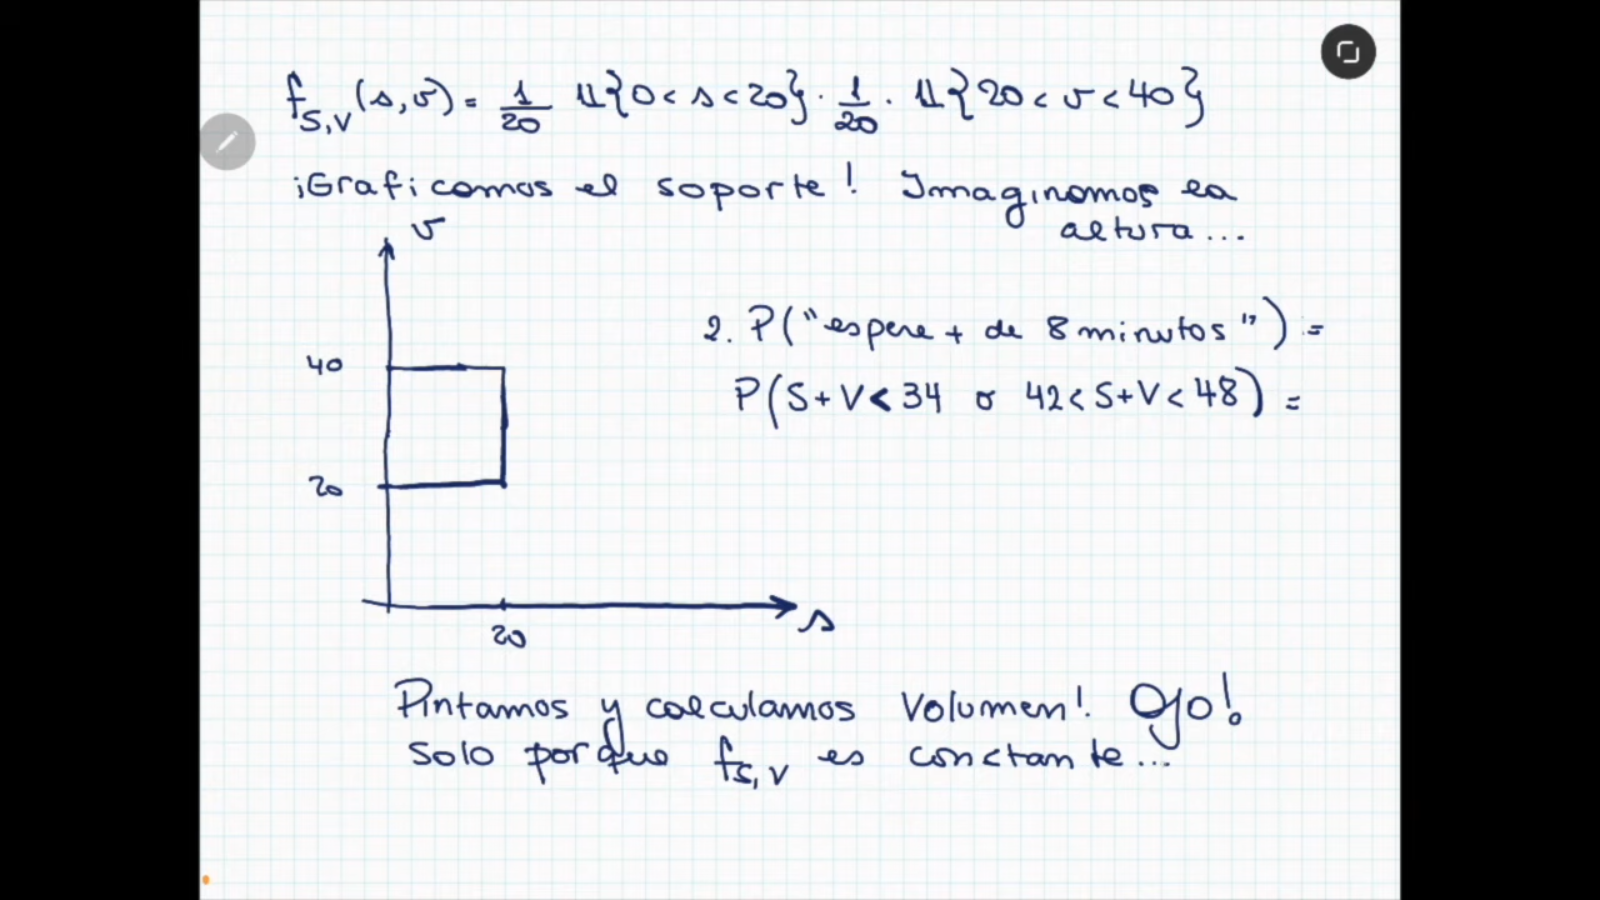 f_{S,V}(s,v) = 1/20 𝟙{0 < s < 20} · 1/20 · 𝟙{20 < v < 40}
¡Graficamos el soporte! Imaginamos la
altura...
v
2. P("espere + de 8 minutos") =
40
P(S+V < 34 o 42 < S+V < 48) =
20
20
s
Pintamos y calculamos Volumen! Ojo!
solo porque f_{S,V} es constante...